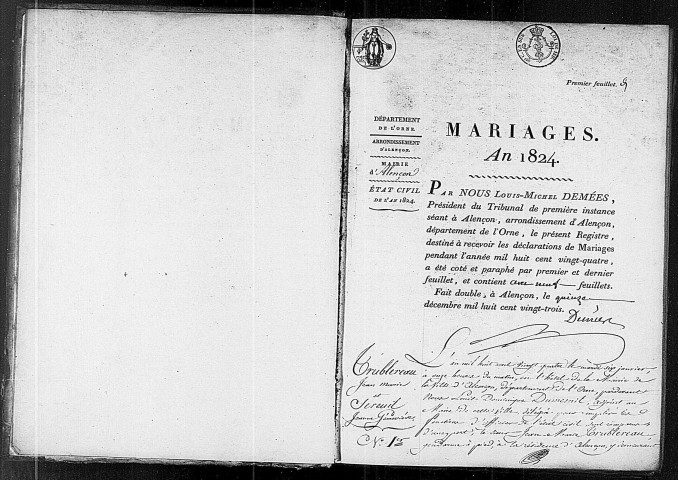 Premier feuillet.
DÉPARTEMENT
DE L'ORNE.
ARRONDISSEMENT
D'ALENÇON.
MAIRIE
d'Alençon
ÉTAT CIVIL
DE L'AN 1824.
MARIAGES.
An 1824.
PAR NOUS LOUIS-MICHEL DEMÉES,
Président du Tribunal de première instance
séant à Alençon, arrondissement d'Alençon,
département de l'Orne, le présent Registre,
destiné à recevoir les déclarations de Mariages
pendant l'année mil huit cent vingt-quatre,
a été coté et paraphé par premier et dernier
feuillet, et contient feuillets.
Fait double, à Alençon, le quinze
décembre mil huit cent vingt-trois.
Trublereau
Jean marie
et
Jereuil
Jeanne Geneviève
N.º 1
L'an mil huit cent vingt quatre le mardi six janvier
à onze heures du matin, en l'hôtel de la Mairie de
la Ville d'Alençon, département de l'Orne, pardevant
Nous Louis Dominique Dumesnil, adjoint au
Maire de cette Ville délégué pour remplir les
fonctions d'officier de l'état civil, sont comparus
le sieur Jean Marie Trublereau
gendarme à pied, à la résidence d'Alençon, y demeurant